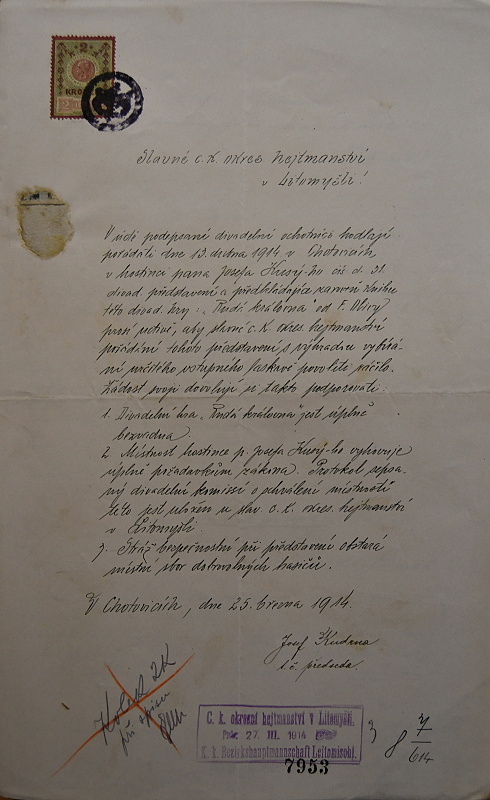 2
KRO
Slavné c. k. okres. hejtmanství
v Litomyšli!
V úctě podepsaní divadelní ochotníci hodlají
pořádati dne 13. dubna 1914 v Chotovicích
v hostinci pana Josefa Kusý-ho čís d. 31.
divad. představení a předkládajíce zároveň knihu
této divad. hry: „Rudá královna" od F.
prosí uctivě, aby slavné c. k. okres. hejtmanství
pořádání tohoto představení s výhradou vybírá-
ní určitého vstupného laskavě povoliti ráčilo.
Žádost svoji dovolují si takto podporovati:
1. Divadelní hra „Rudá královna" jest úplně
bezvadna.
2. Místnost hostince p. Josefa Kusý-ho vyhovuje
úplně požadavkům zákona. Protokol sepsa-
ný divadelní komissí o schválení místnosti
této jest uložen u slav. c. k. okres. hejtmanství
v Litomyšli.
3. Stráž bezpečnostní při představení obstará
místní sbor dobrovolných hasičů.
V Chotovicích, dne 25. března 1914.
Josef Kudrna
t. č. předseda.
Kolek 2K
při
C. k. okresní hejtmanství v Litomyšli.
27. III. 1914
K. k. Bezirkshauptmannschaft Leitomischl.
7953
3
8 7/614